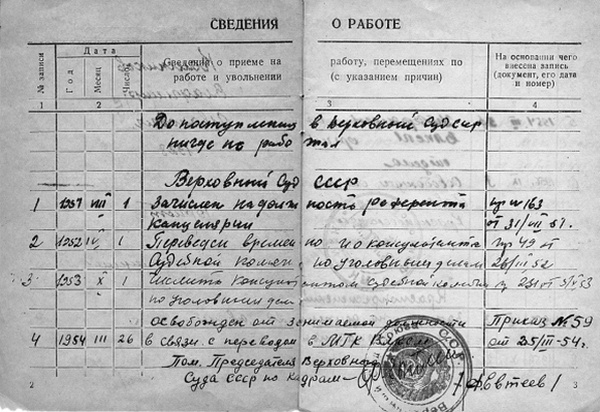 СВЕДЕНИЯ О РАБОТЕ
№ записи
Дата
Год
Месяц
Число
Сведения о приеме на работу, перемещениях по
работе и увольнении (с указанием причин)
На основании чего
внесена запись
(документ, его дата
и номер)
1 2 3 4
До поступления в Верховный Суд СССР
нигде не работал
Верховный Суд СССР
1 1951 VIII 1 Зачислен на должность референта пр №163
канцелярии от 31/VII 51.
2 1952 IV 1 Переведен временно и о консультанта пр 49 от
Судебной колегии по уголовным делам 26/III 52
3 1953 X 1 Числить консультантом судебной колегии
по уголовным делам
освобожден от занимаемой должности Приказ №59
4 1954 III 26 в связи с переводом в МГК ВЛКСМ от 25/III-54г.
Пом. Председателя Верховного
Суда СССР по Кадрам- /Ф.Евтеев/
2 3